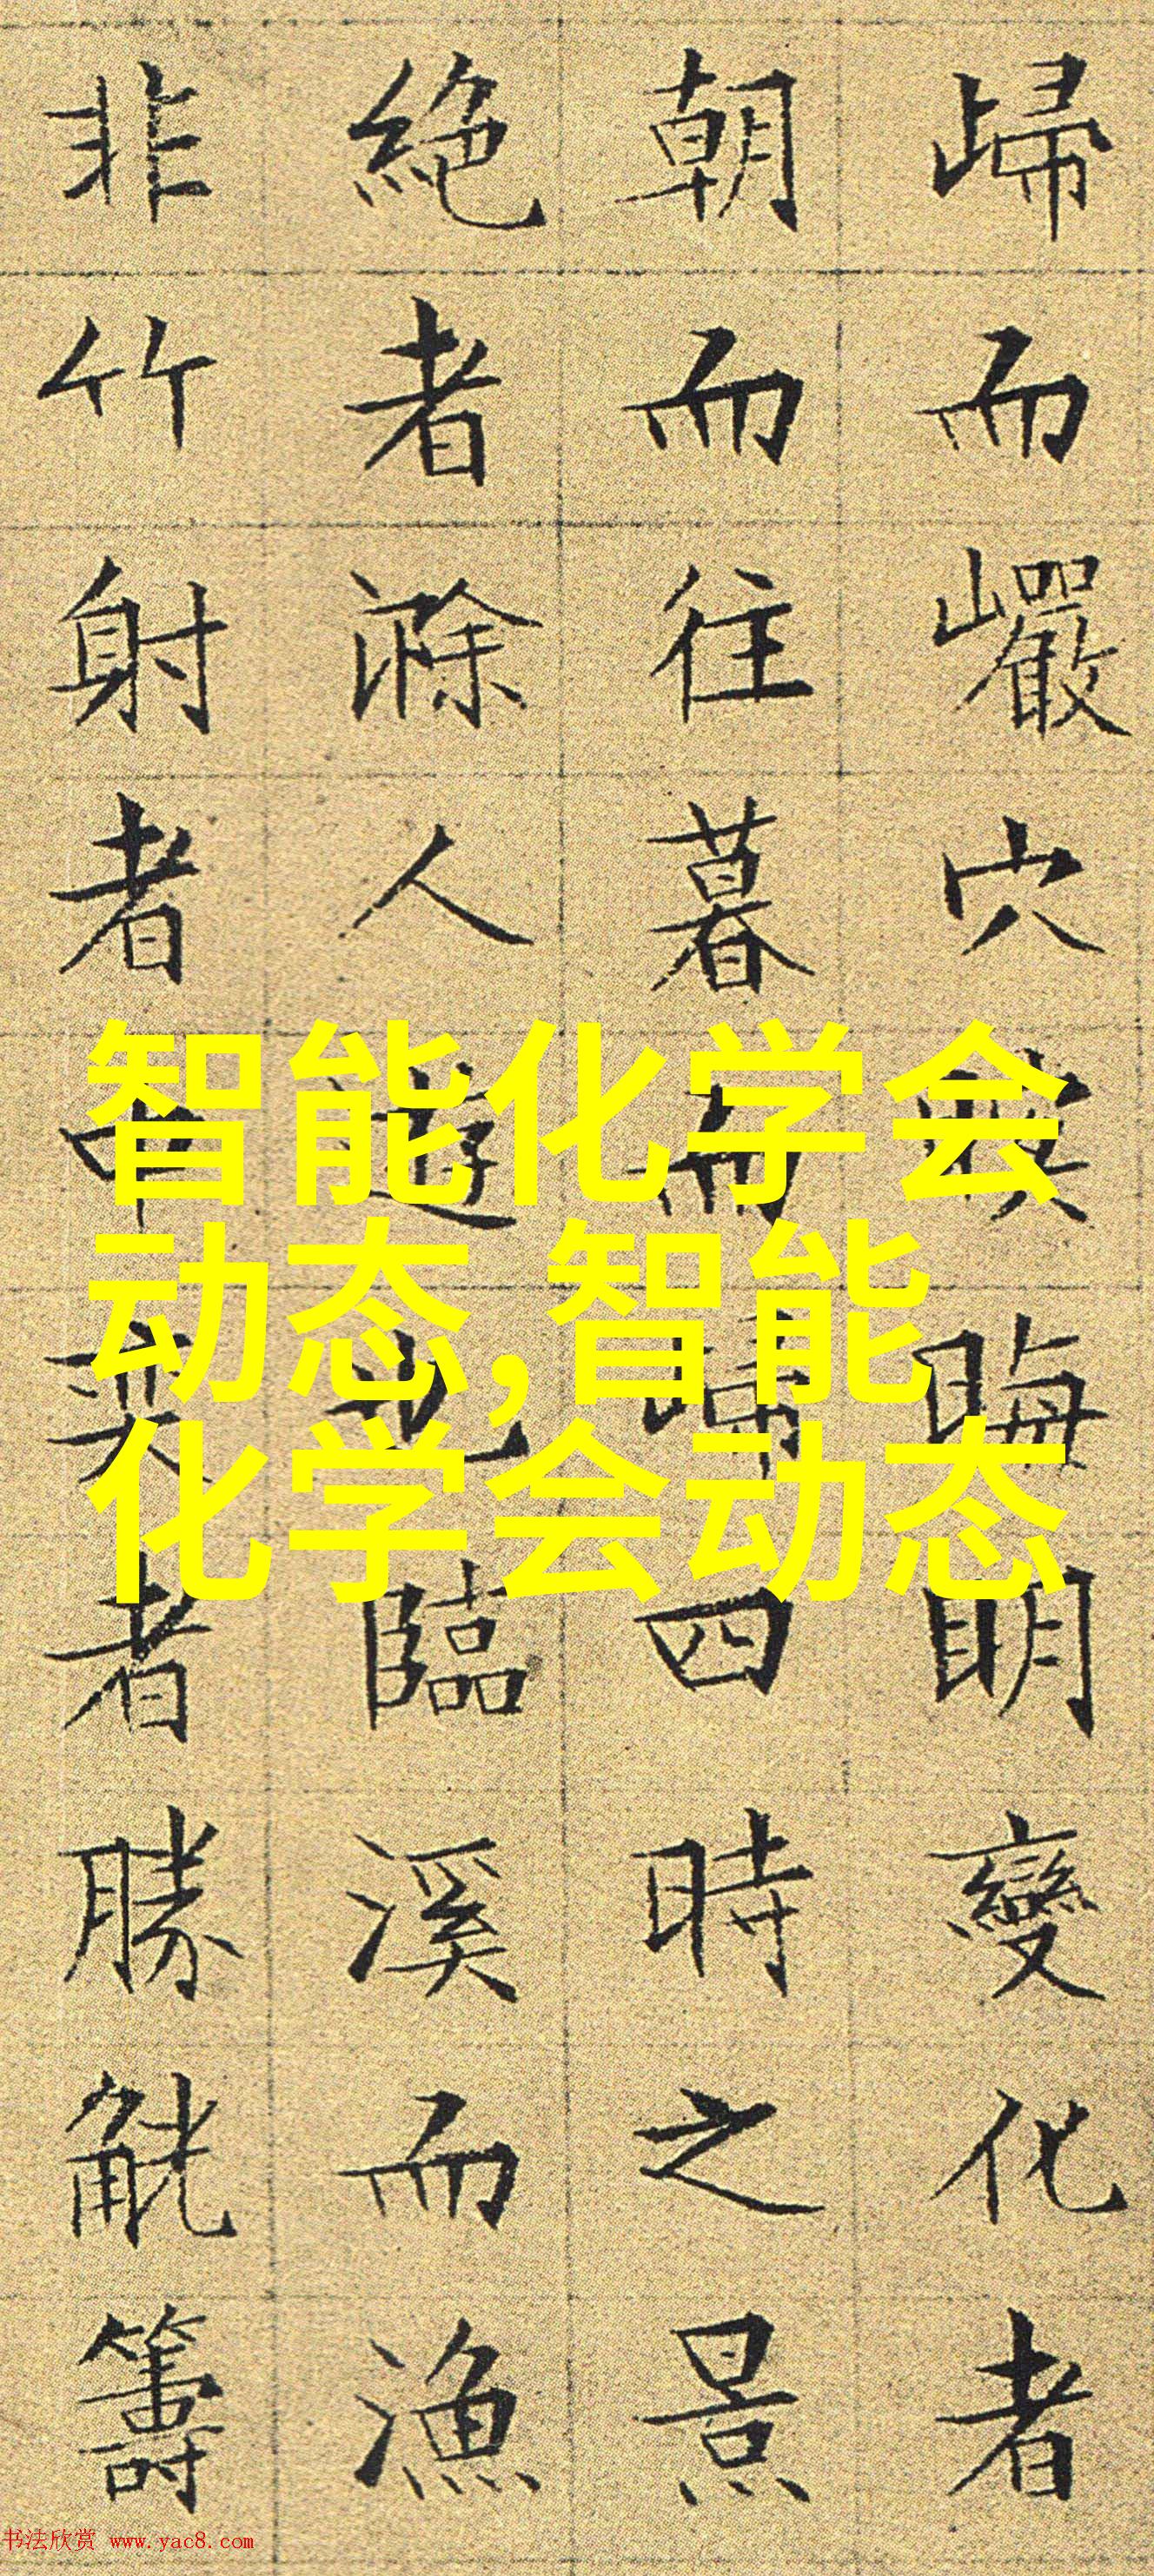 歸而巖穴暝晦明變化者
朝而往暮而歸四時之景
絕者滁人遊也臨溪而漁
非竹射者中奕者勝觥籌
智能化学会
动态,智能
化学会动态
书法欣赏 www.yac8.com